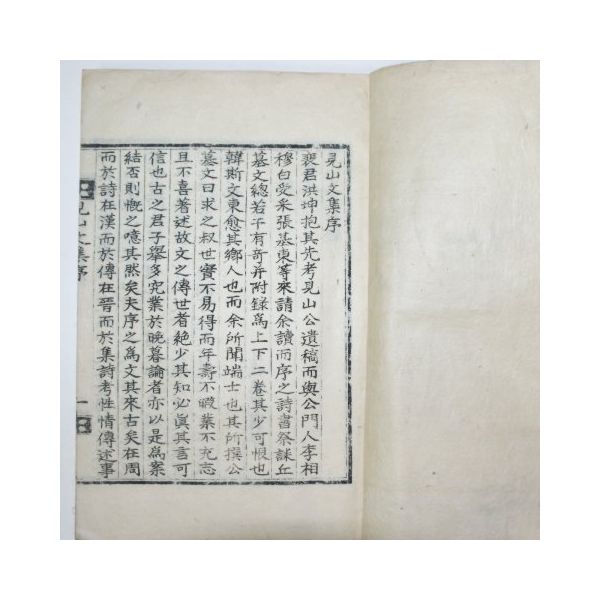 見山文集序
裵君洪坤抱其先考見山公遺稿而與公門人李相
穆白受采張基東等來請余讀而序之詩書祭誄丘
墓文總若干有奇并附錄爲上下二卷其少可恨也
韓斯文東愈其鄕人也而余所聞端士也其所撰公
墓文曰求之叔世實不易得而年壽不暇業不充志
且不喜著述故文之傳世者絶少其知必眞其言可
信也古之君子擧多究業於晩暮論者亦以是爲案
結否則慨之噫其然矣夫序之爲文其來古矣在周
而於詩在漢而於傳在晉而於集詩考性情傳述事
見山文集序
一